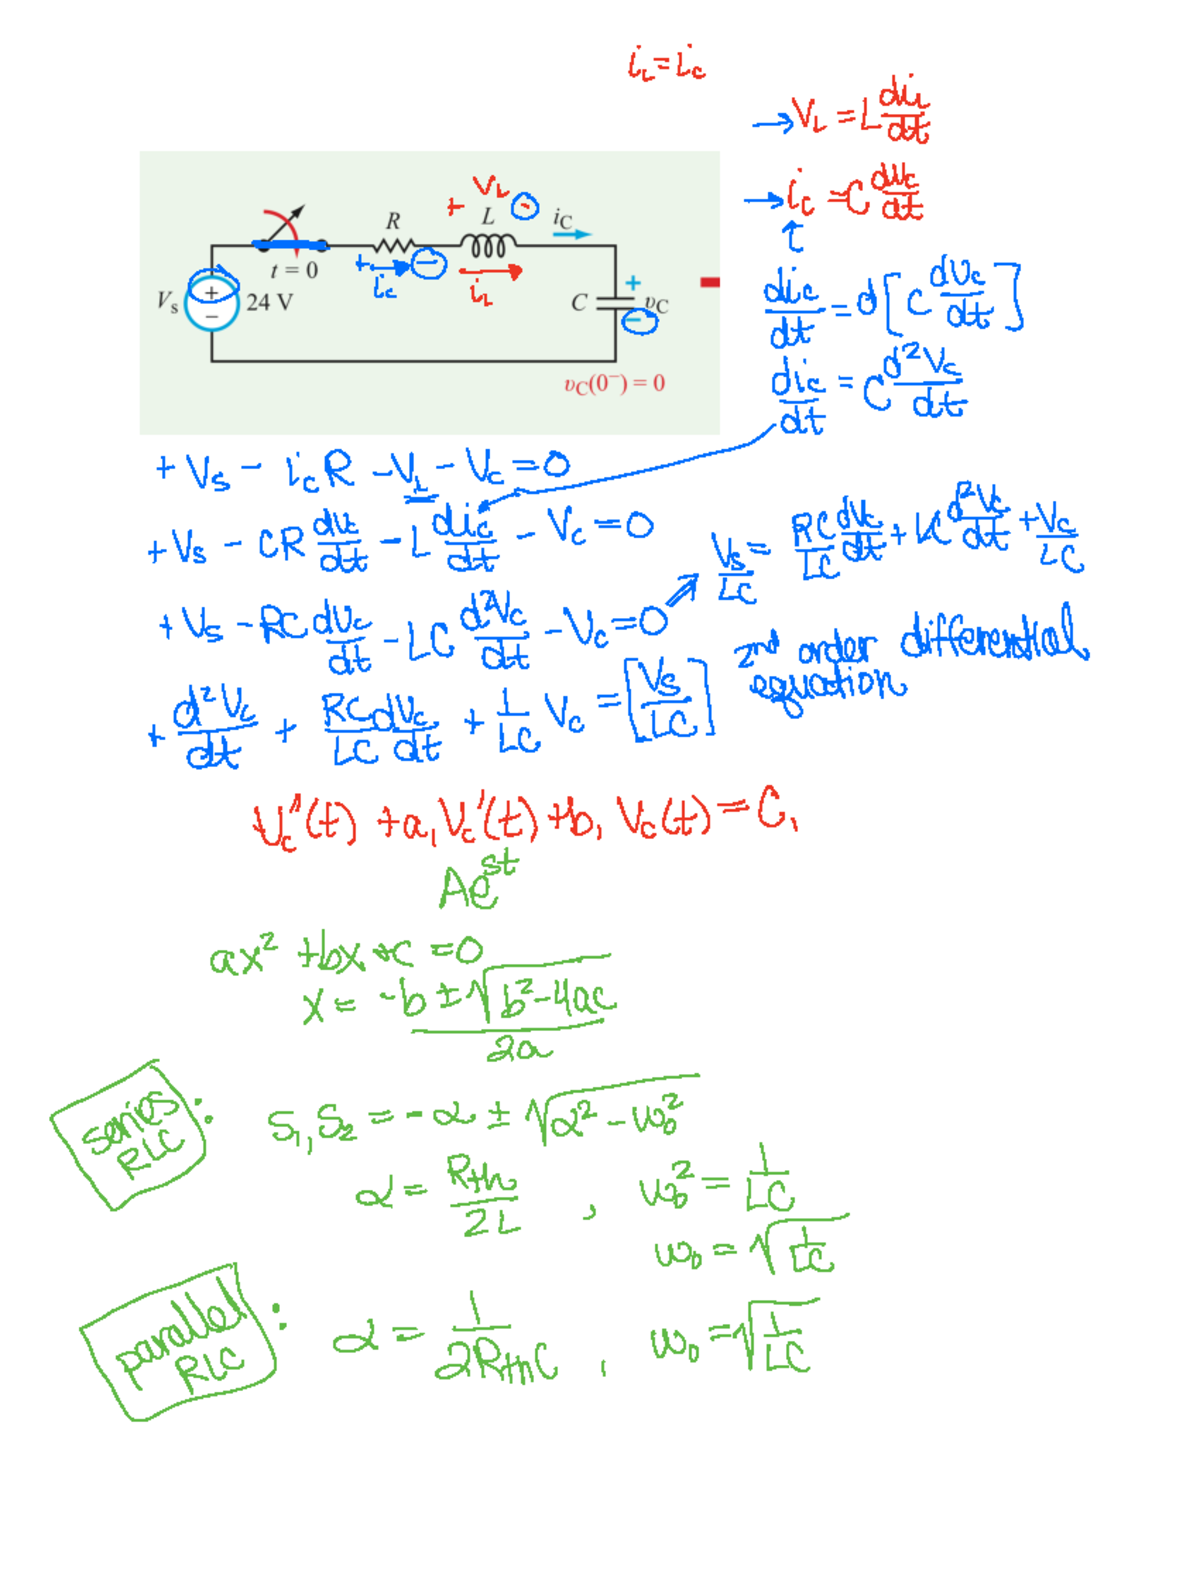 i_L = i_c
→ V_L = L di_L/dt
→ i_c = C dv_c/dt
di_c/dt = d[C dv_c/dt]
di_c/dt = C d²V_c/dt
+ V_L -
R
L
i_C
t = 0
+ i_c -
i_L
V_s
+
-
24 V
C
+
υ_C
-
υ_C(0⁻) = 0
+V_s - i_cR - V_L - V_c = 0
+V_s - CR dv_c/dt - L di_c/dt - V_c = 0
V_s/LC = RC/LC dv_c/dt + LC d²V_c/dt + V_c/LC
+V_s - RC dv_c/dt - LC d²V_c/dt - V_c = 0
2nd order differential
equation
+ d²V_c/dt + RC/LC dV_c/dt + 1/LC V_c = [V_s/LC]
V_c''(t) + a₁V_c'(t) + b₁V_c(t) = C₁
Ae^st
ax² + bx + c = 0
x = -b ± √b²-4ac / 2a
series
RLC :
S₁, S₂ = -α ± √α² - ω₀²
α = R_th/2L , ω₀² = 1/LC
ω₀ = √1/LC
parallel
RLC :
α = 1/2R_thC , ω₀ = √1/LC